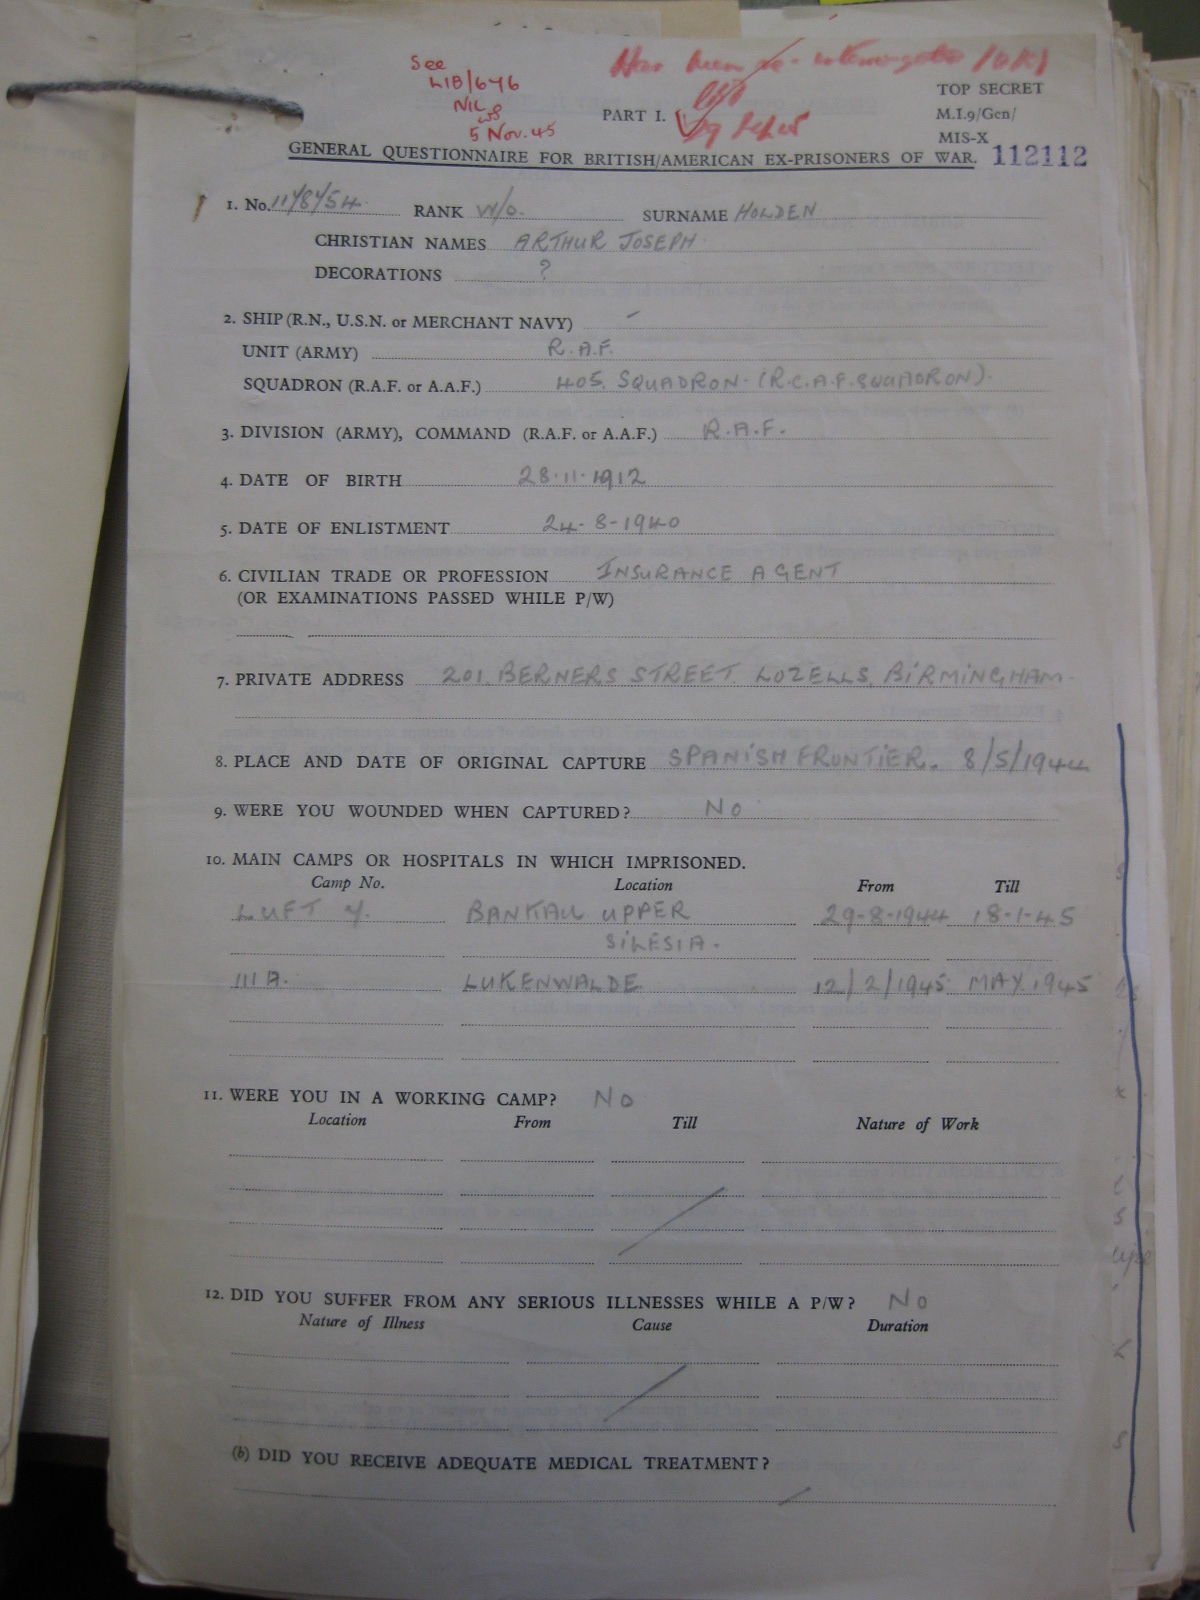 See
LIB/646
NIL
5 Nov. 45
Has been re-interrogated
PART I.
TOP SECRET
M.I.9/Gen/
MIS-X
112112
GENERAL QUESTIONNAIRE FOR BRITISH/AMERICAN EX-PRISONERS OF WAR.
1. No. RANK W/O. SURNAME HOLDEN
CHRISTIAN NAMES ARTHUR JOSEPH
DECORATIONS ?
2. SHIP (R.N., U.S.N. or MERCHANT NAVY) -
UNIT (ARMY) R.A.F.
SQUADRON (R.A.F. or A.A.F.) 405. SQUADRON. (R.C.A.F. SQUADRON).
3. DIVISION (ARMY), COMMAND (R.A.F. or A.A.F.) R.A.F.
4. DATE OF BIRTH 28.11.1912
5. DATE OF ENLISTMENT 24-8-1940
6. CIVILIAN TRADE OR PROFESSION INSURANCE AGENT
(OR EXAMINATIONS PASSED WHILE P/W)
7. PRIVATE ADDRESS 201, BERNERS STREET. LOZELLS, BIRMINGHAM.
8. PLACE AND DATE OF ORIGINAL CAPTURE SPANISH FRONTIER. 8/5/1944
9. WERE YOU WOUNDED WHEN CAPTURED? NO
10. MAIN CAMPS OR HOSPITALS IN WHICH IMPRISONED.
Camp No. Location From Till
LUFT 7. BANKAU UPPER 29-8-1944 18-1-45
SILESIA.
III A. LUKENWALDE 12/2/1945 MAY 1945
11. WERE YOU IN A WORKING CAMP? NO
Location From Till Nature of Work
12. DID YOU SUFFER FROM ANY SERIOUS ILLNESSES WHILE A P/W? NO
Nature of Illness Cause Duration
(b) DID YOU RECEIVE ADEQUATE MEDICAL TREATMENT?